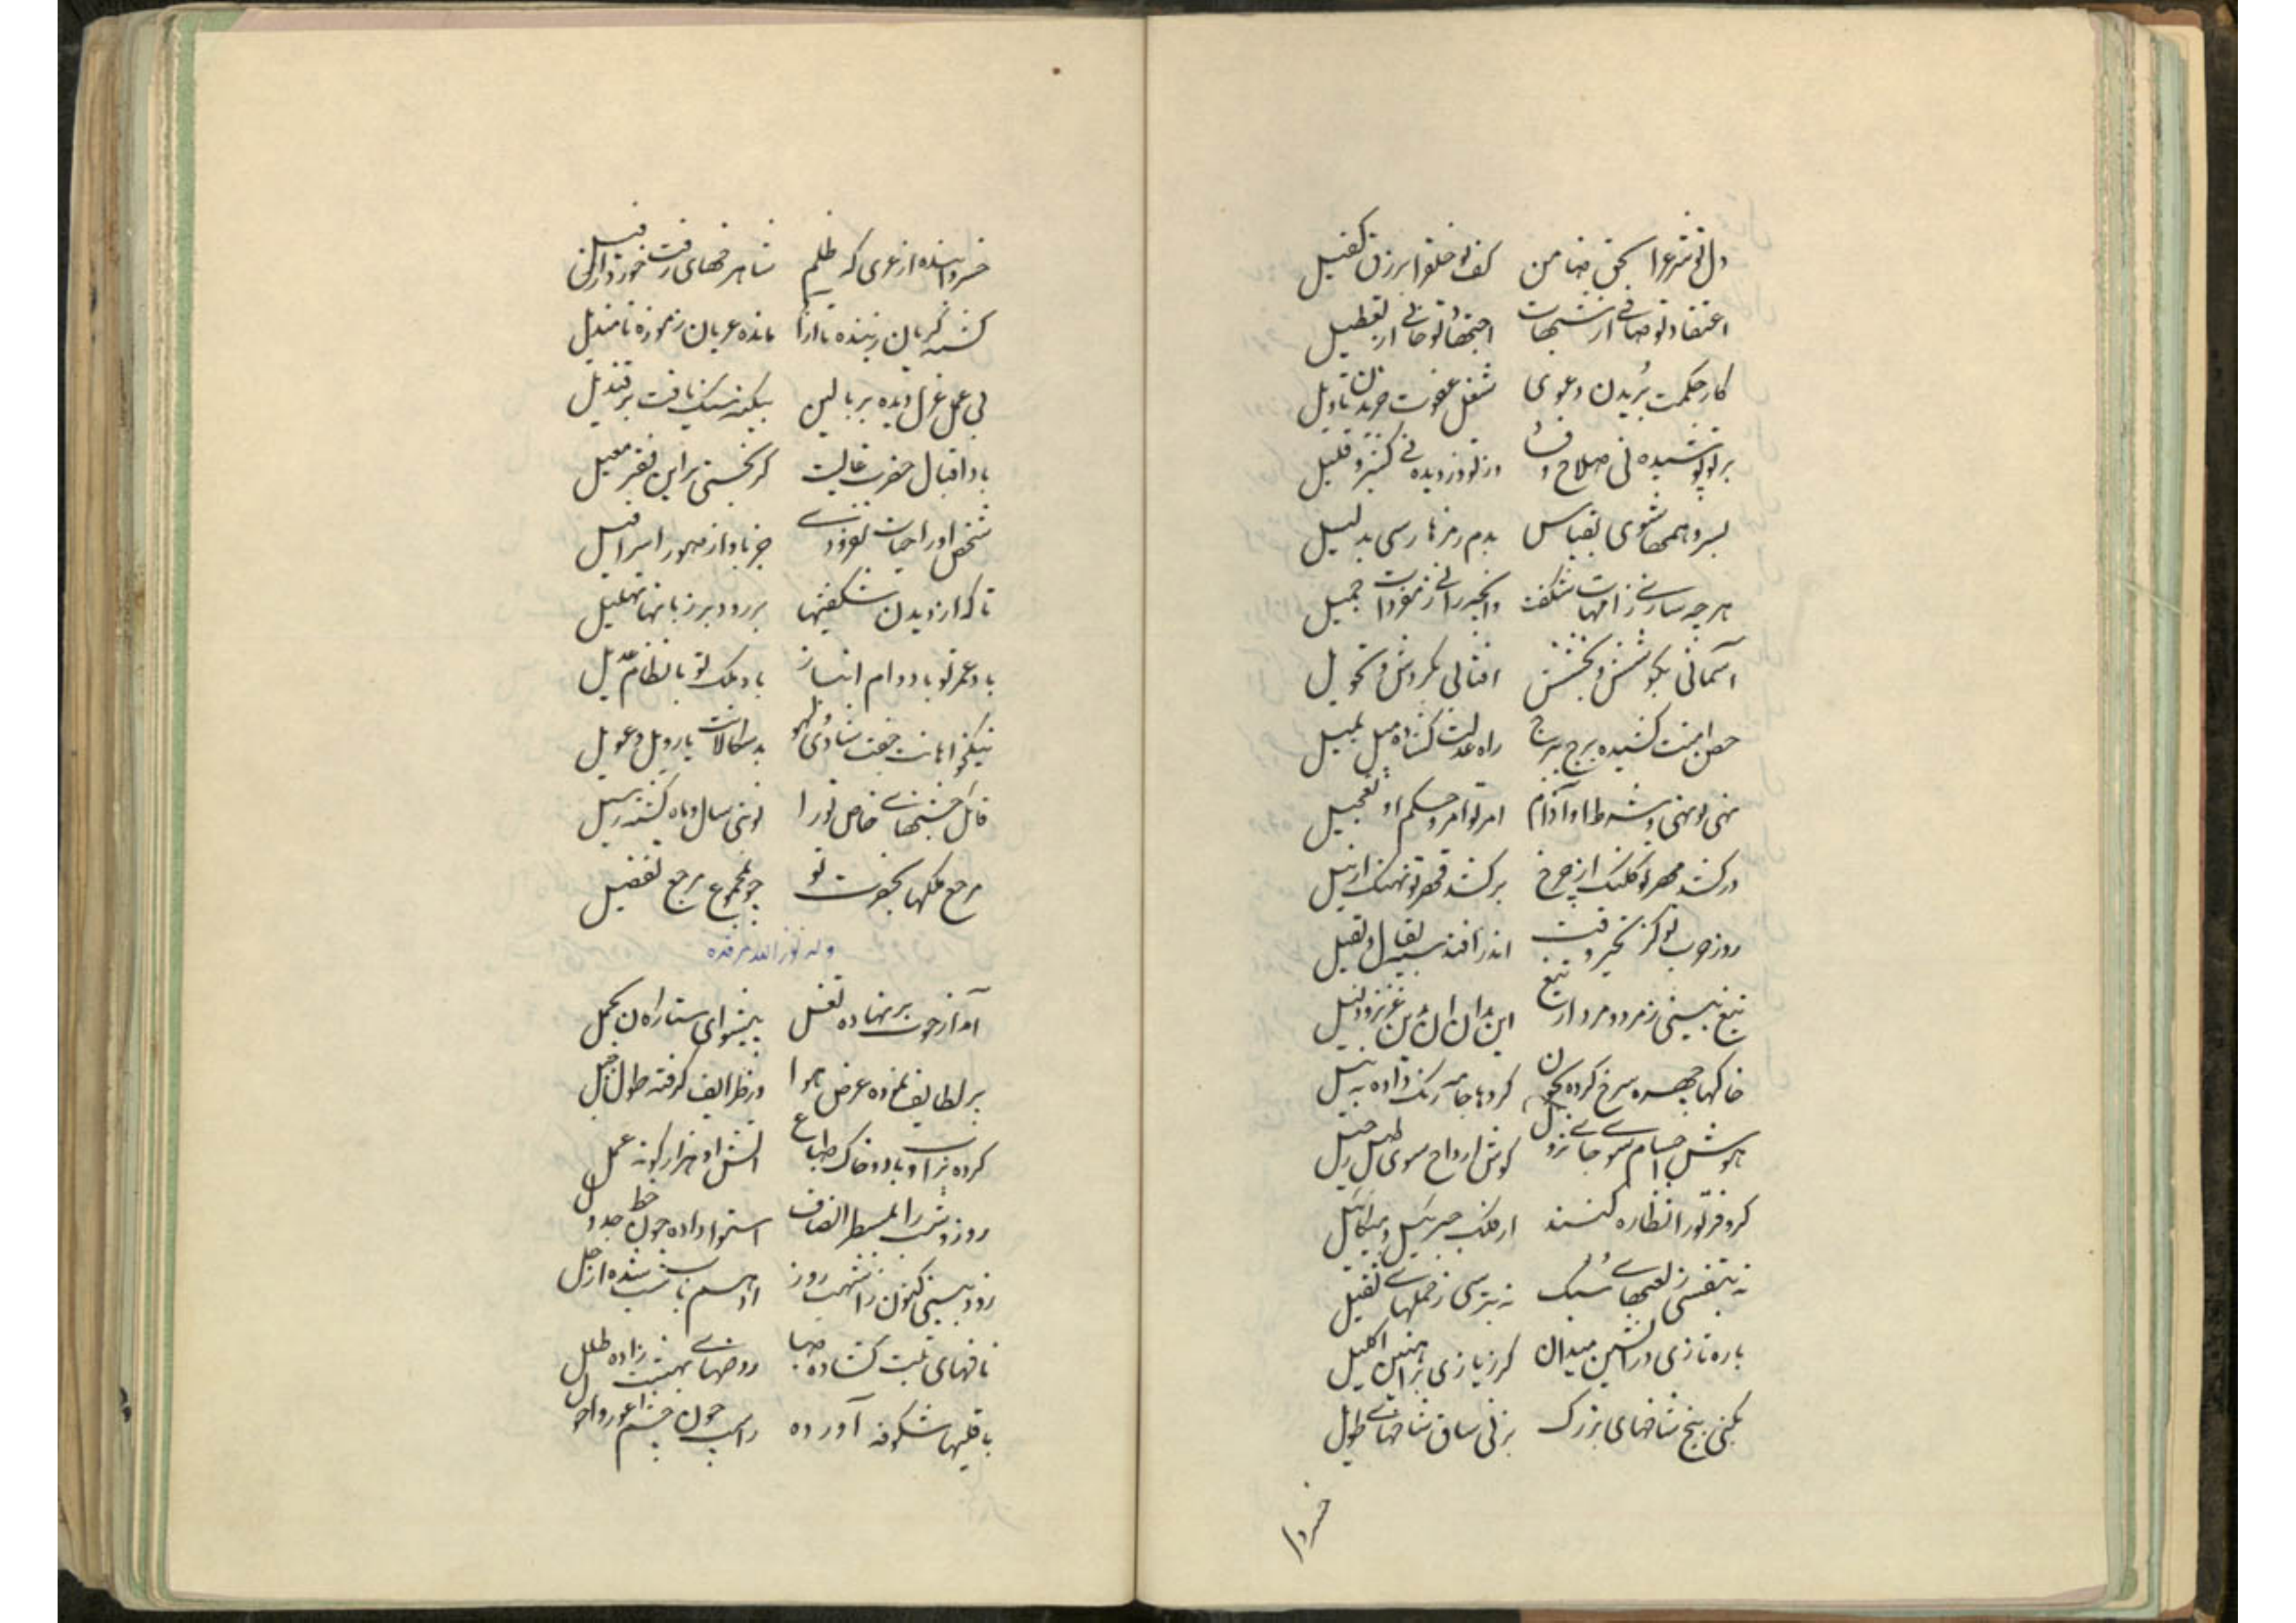 دل تو شرع را بحق ضامن کف تو خلق را برزق کفیل
اعتقاد تو صافی از شبهات اجتهاد تو خالی از تعطیل
کار حکمت بریدن دعوی شغل عفوت خریدن تاویل
بر تو پوشیده نی صلاح و فساد وز تو دزدیده نی کثیر و قلیل
بسر وهمها شوی بقیاس بدم رمزها رسی بدلیل
هر چه سازی ز امهات شگفت وانچه رانی ز مفردات جمیل
آسمانی بکوشش و بخشش افتابی بگردش و تحویل
حصن امنت کشیده برج ببرج راه عدلت گشاده میل بمیل
نهی تو نهی و شرط او آرام امر تو امر و حکم او تعجیل
در کشد مهر تو کلنگ از چرخ بر کشد قهر تو نهنگ از نیل
روز حرب تو کز نحیر و قت اندر افتد سپه بقال و بقیل
تیغ بینی ز مرد و مرد از تیغ این بدان آن بدین عزیز و ذلیل
خاکها چهره سرخ کرده بخون گردها جامه رنگ داده به نیل
هوش اجسام سوی جای نزول گوش ارواح سوی طبل رحیل
کر و فر تو را نظاره کنند از فلک جبرئیل و میکائیل
نه بتفسی ز لعبهای سبک نه بترسی ز حملهای ثقیل
باره تازی در آتشین میدان گرز یازی بر آهنین اکلیل
بکنی بیخ شاخهای بزرگ بزنی ساق شاخهای طویل
خسروا
خسروا بنده از غری که ظلم شاهرخهای رفت خورد از فیل
گشته گریان ز بنده تا ازاد مانده عریان ز موزه تا مندیل
بی عمل عزل دیده بر بالین بیگنه سنگ یافت بر قندیل
باد اقبال حضرت عالیت گر بخستی بر این فقیر معیل
شخص او را حیات نفزودی جز باواز صور اسرافیل
تا که از دیدن شگفتیها بررود بر زبانها تهلیل
باد عمر تو با دوام انباز باد ملک تو با نظام عدیل
نیکخواهانت جفت شادی و لهو بدسگالانت یار ویل و عویل
قائل جشنهای خاص تو را نوبتی سال و ماه گشته رسیل
مرجع ملکها بحضرت تو چو بمجموع مرجع تفصیل
وله نور الله مرقده
آمد از حوت بر نهاده ثقل پیشوای ستارگان بحمل
بر لطایف نموده عرض هوا وز ظرایف گرفته طول جبل
کرده بر آب و باد و خاک طباع آتش او هزار گونه عمل
روز و شب را بمسطر انصاف استوا داده چون خط جدول
زود بینی کنون ز اشهب روز ادهم شب شده از جل
نافهای تبت گشاده صبا روضهای بهشت زاده طلل
باقلیها شکوفه آورده راست چون چشم اعور و احول